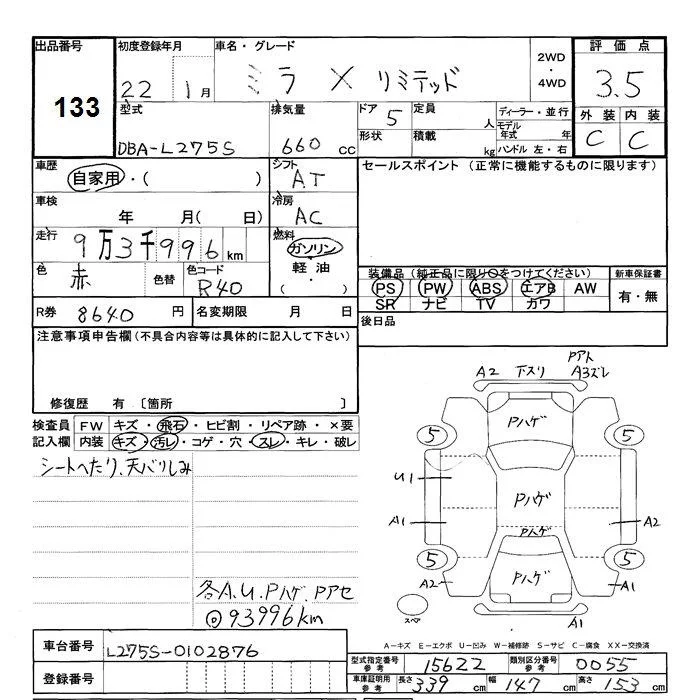 出品番号 133
初度登録年月 22 1月
車名・グレード ミラ X リミテッド
2WD・4WD
評価点 3.5
外装 内装
C C
型式 DBA-L275S
排気量 660cc
ドア 5
定員 人
形状
積載 kg
ディーラー・並行
モデル年式 年
ハンドル 左・右
車歴 自家用・( )
シフト AT
セールスポイント (正常に機能するものに限ります)
車検 年 月( 日)
冷房 AC
走行 9万3千996km
燃料 ガソリン
軽油・( )
色 赤
色替
色コード R40
装備品 (純正品に限り○をつけてください)
新車保証書
PS PW ABS エアB AW
SR ナビ TV カワ
有・無
R券 8640円
名変期限 月 日
後日品
注意事項申告欄(不具合内容等は具体的に記入して下さい)
修復歴 有 〔箇所 〕
検査員記入欄
FW キズ・飛石・ヒビ割・リペア跡・×要
内装 キズ・汚レ・コゲ・穴・スレ・キレ・破レ
シートへたり、天バリしみ
各A.U.Pハゲ Pアセ
◎93996km
A2 下スリ PアトA3ズレ
Pハゲ
5 5
U1
Pハゲ
A1 A2
Pハゲ
5 5
A2 Pハゲ A1
スペア
A1
A−キズ E−エクボ U−凹み W−補修跡 S−サビ C−腐食 XX−交換済
車台番号 L275S-0102876
登録番号
型式指定番号参考 15622
類別区分番号参考 0055
車庫証明用参考 長さ 339cm 幅 147cm 高さ 153cm